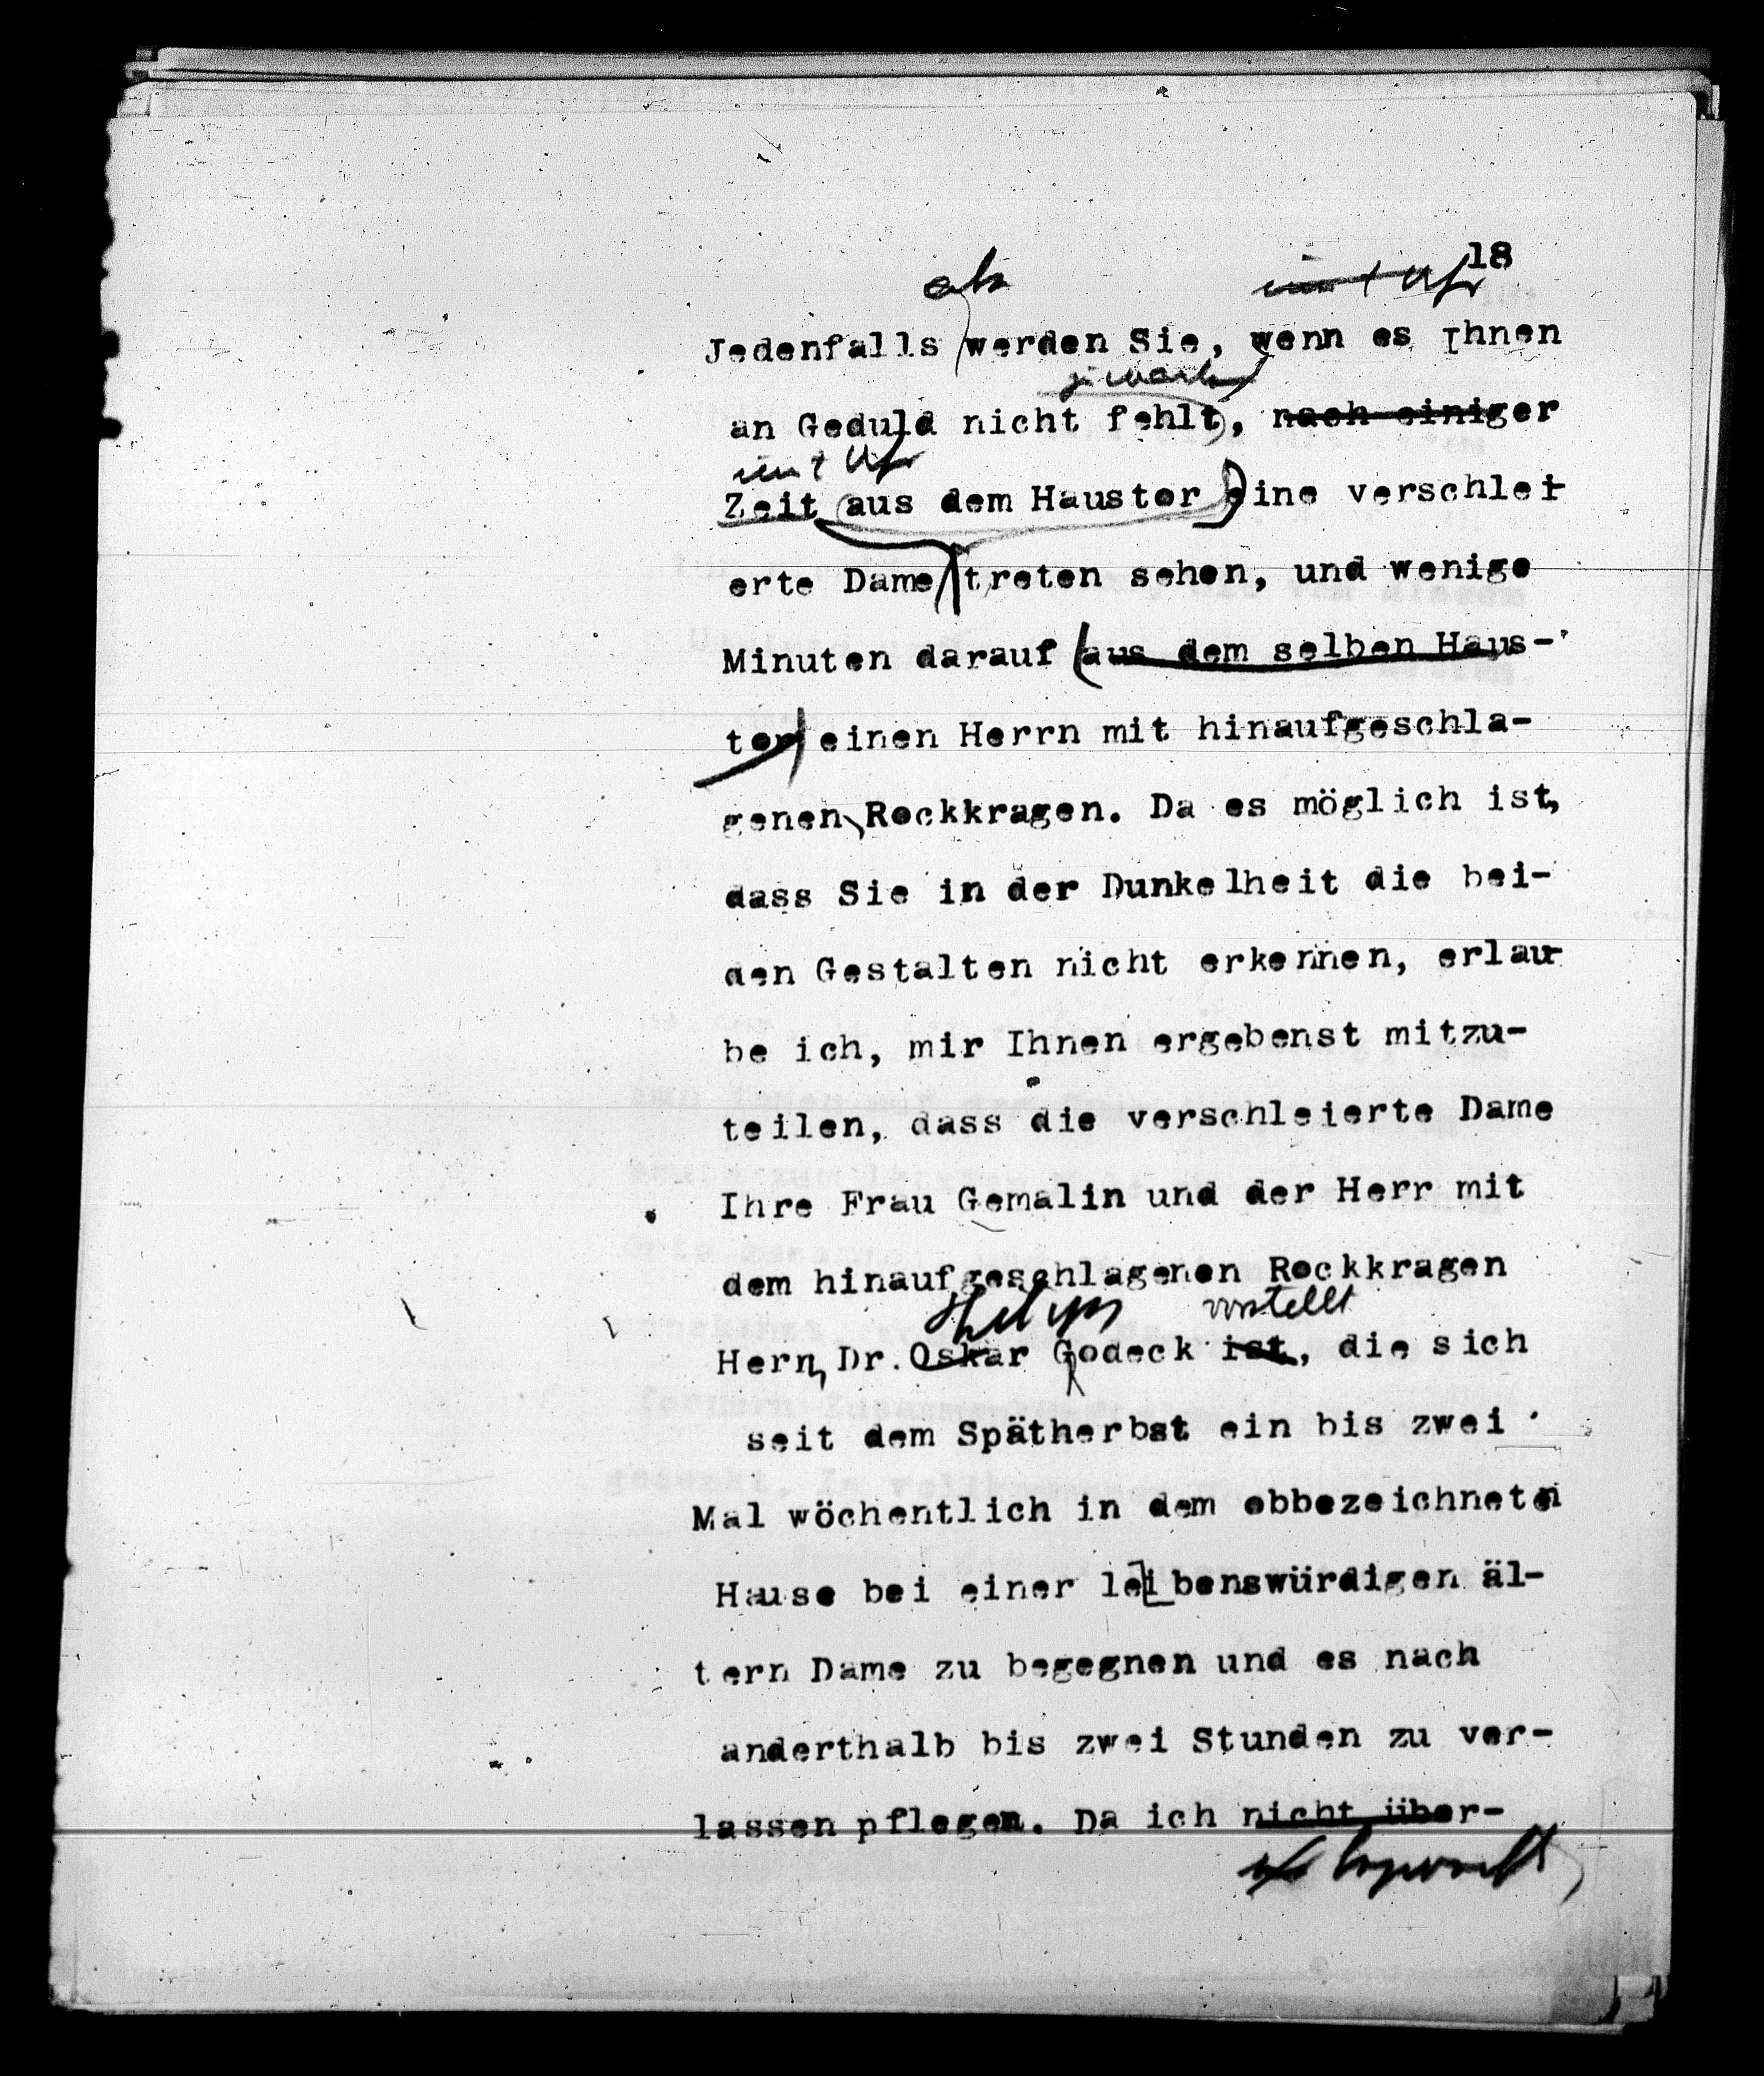 18
Jedenfalls werden Sie, wenn es Ihnen
an Geduld nicht fehlt, nach einiger
Zeit aus dem Haustor eine verschlei-
erte Dame treten sehen, und wenige
Minuten darauf aus dem selben Haus-
tor einen Herrn mit hinaufgeschla-
genen Rockkragen. Da es möglich ist,
dass Sie in der Dunkelheit die bei-
den Gestalten nicht erkennen, erlau-
be ich, mir Ihnen ergebenst mitzu-
teilen, dass die verschleierte Dame
Ihre Frau Gemalin und der Herr mit
dem hinaufgeschlagenen Rockkragen
vorstellt
Hern Dr. Oskar Godeck ist, die sich
seit dem Spätherbst ein bis zwei
Mal wöchentlich in dem obbezeichneten
Hause bei einer leibenswürdigen äl-
tern Dame zu begegnen und es nach
anderthalb bis zwei Stunden zu ver-
lassen pflegen. Da ich nicht über-